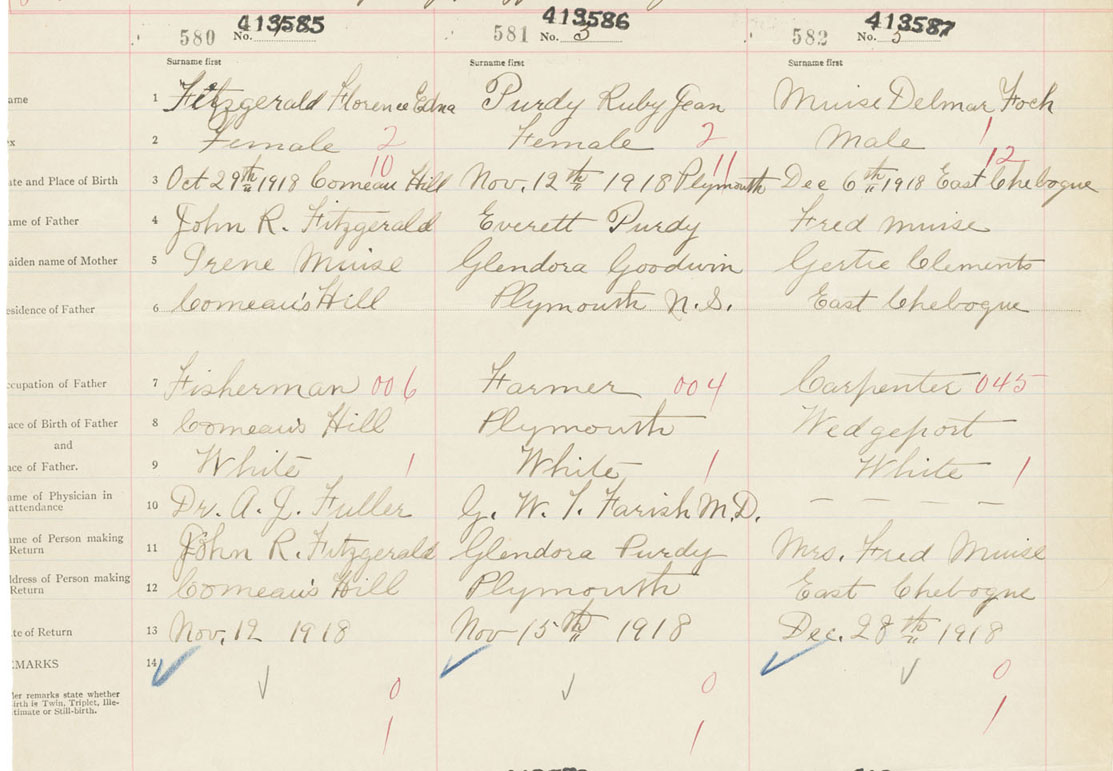 413585 413586 413587
580 No. 581 No. 3 582 No. 5
Surname first Surname first Surname first
ame 1 Fitzgerald Florence Edna Purdy Ruby Jean Muise Delmar Foch
ex 2 Female 2 Female 2 Male 1
10 11 12
ate and Place of Birth 3 Oct 29th 1918 Comeau Hill Nov. 12th 1918 Plymouth Dec 6th 1918 East Chebogue
ame of Father 4 John R. Fitzgerald Everett Purdy Fred Muise
aiden name of Mother 5 Irene Muise Glendora Goodwin Gertie Clements
esidence of Father 6 Comeau's Hill Plymouth N.S. East Chebogue
ccupation of Father 7 Fisherman 006 Farmer 004 Carpenter 045
ace of Birth of Father 8 Comeau's Hill Plymouth Wedgeport
and
ace of Father. 9 White 1 White 1 White 1
ame of Physician in
attendance 10 Dr. A. J. Fuller G. W. T. Farish M.D. - - - -
ame of Person making
Return 11 John R. Fitzgerald Glendora Purdy Mrs. Fred Muise
ddress of Person making
Return 12 Comeau's Hill Plymouth East Chebogue
ate of Return 13 Nov, 12 1918 Nov 15th 1918 Dec. 28th 1918
EMARKS 14
0 0 0
der remarks state whether
irth is Twin, Triplet, Ille-
timate or Still-birth.
1 1 1